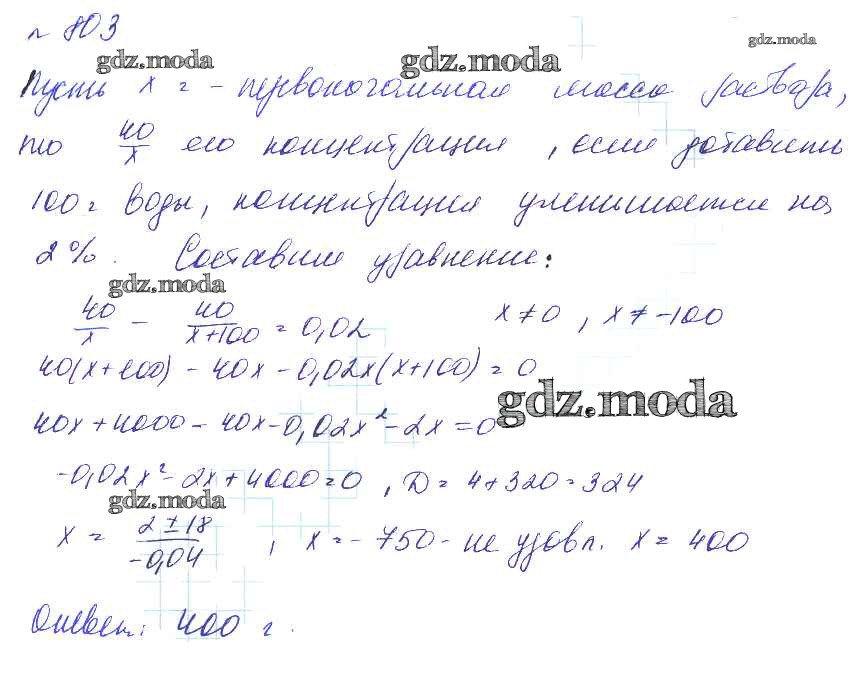 № 803
gdz.moda gdz.moda gdz.moda
Пусть x г - первоначальная масса раствора,
то 40/x его концентрация, если добавить
100 г воды, концентрация уменьшается на
2%. Составим уравнение:
gdz.moda
40/x - 40/(x+100) = 0,02    x ≠ 0, x ≠ -100
40(x+100) - 40x - 0,02x(x+100) = 0
gdz.moda
40x + 4000 - 40x - 0,02x² - 2x = 0
-0,02x² - 2x + 4000 = 0, D = 4 + 320 = 324
gdz.moda
x = (2 ± 18)/(-0,04), x = - 750 - не удовл. x = 400
Ответ: 400 г.